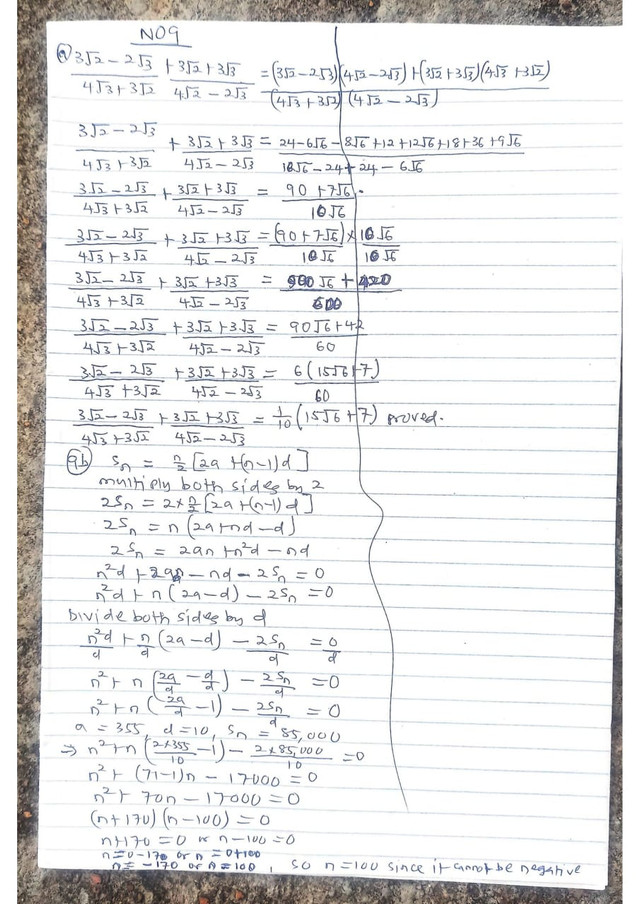 NO9
a) (3√2 − 2√3)/(4√3+3√2) + (3√2+3√3)/(4√2 − 2√3) = ((3√2−2√3)(4√2−2√3)+(3√2+3√3)(4√3+3√2))/((4√3+3√2)(4√2−2√3))
(3√2−2√3)/(4√3+3√2) + (3√2+3√3)/(4√2−2√3) = (24−6√6−8√6+12+12√6+18+36+9√6)/(16√6−24+24−6√6)
(3√2−2√3)/(4√3+3√2) + (3√2+3√3)/(4√2−2√3) = (90+7√6)/(10√6).
(3√2−2√3)/(4√3+3√2) + (3√2+3√3)/(4√2−2√3) = (90+7√6)/(10√6) × (10√6)/(10√6)
(3√2−2√3)/(4√3+3√2) + (3√2+3√3)/(4√2−2√3) = (900√6+420)/600
(3√2−2√3)/(4√3+3√2) + (3√2+3√3)/(4√2−2√3) = (90√6+42)/60
(3√2−2√3)/(4√3+3√2) + (3√2+3√3)/(4√2−2√3) = 6(15√6+7)/60
(3√2−2√3)/(4√3+3√2) + (3√2+3√3)/(4√2−2√3) = 1/10 (15√6+7) proved.
9b) Sn = n/2 [2a+(n−1)d]
multiply both sides by 2
2Sn = 2×n/2 [2a+(n−1)d]
2Sn = n(2a+nd−d)
2Sn = 2an+n²d−nd
n²d+2an−nd−2Sn = 0
n²d+n(2a−d)−2Sn = 0
Divide both sides by d
n²d/d + n/d (2a−d) − 2Sn/d = 0/d
n²+n(2a/d − d/d) − 2Sn/d = 0
n²+n(2a/d −1) − 2Sn/d = 0
a = 355, d=10, Sn = 85,000
⇒ n²+n(2×355/10 −1) − 2×85,000/10 = 0
n²+(71−1)n − 17000 = 0
n²+70n−17000 = 0
(n+170)(n−100) = 0
n+170 = 0 or n−100 = 0
n=0−170 or n=0+100
n= −170 or n=100, so n=100 since it cannot be negative